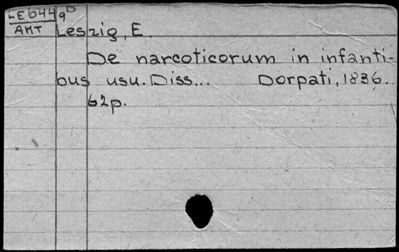 LE6449D
АКТ
Leszig, E.
De narcoticorum in infanti-
bus usu. Diss... Dorpati, 1836.
62p.